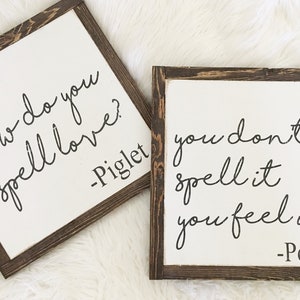 do you
spell love?
-Piglet
you don't
spell it
you feel